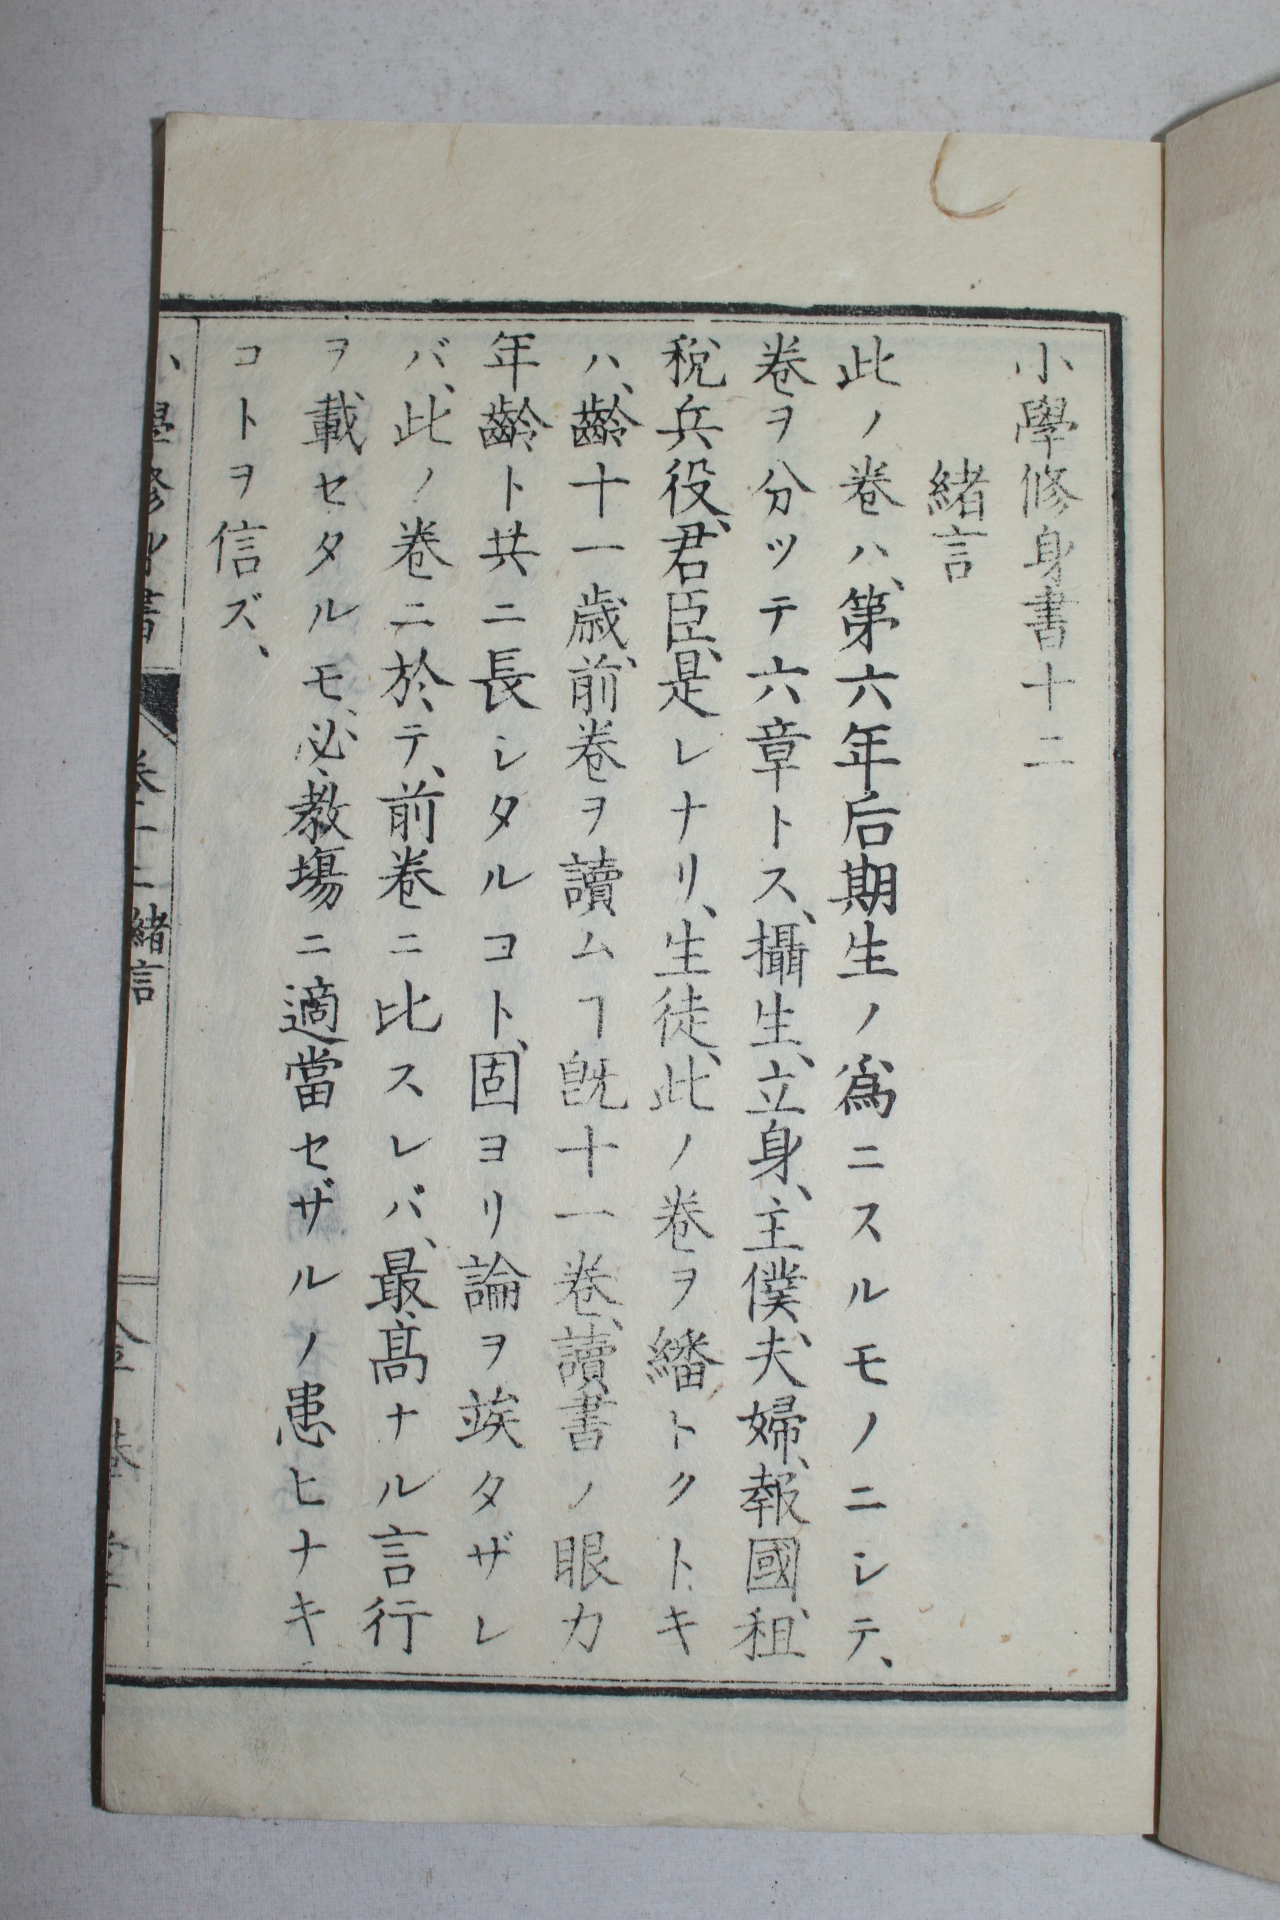 小學修身書十二
緒言
此ノ卷ハ、第六年后期生ノ爲ニスルモノニシテ、
卷ヲ分ツテ六章トス、攝生、立身、主僕、夫婦、報國、租
税兵役、君臣、是レナリ、生徒、此ノ卷ヲ繙トクトキ
ハ、齡十一歳、前卷ヲ讀ムヿ既十一卷、讀書ノ眼力
年齡ト共ニ長シタルコト、固ヨリ論ヲ竢タザレ
バ、此ノ卷ニ於テ、前卷ニ比スレバ、最高ナル言行
ヲ載セタルモ、必、教塲ニ適當セザルノ患ヒナキ
コトヲ信ズ、
小學修身書
卷十二緒言
金港堂